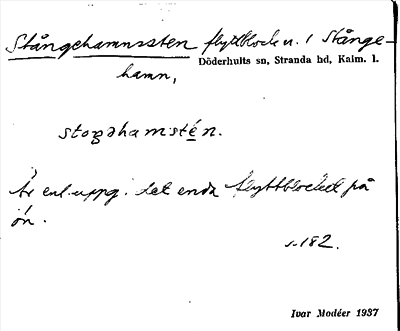 Stångehamnssten flyttblock n. i Stånge-
Döderhults sn, Stranda hd, Kalm. l.
hamn,
stoŋəhamstén.
Är enl. uppg. det enda flyttblocket på
ön.
s. 182.
Ivar Modéer 1937